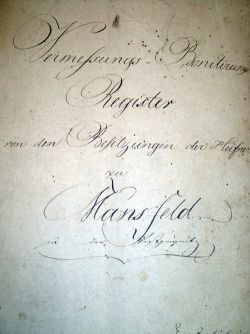 Vermessungs-Bonitirungs
Register
von den Besitzungen der Hüfner
zu
Hansfeld
in der